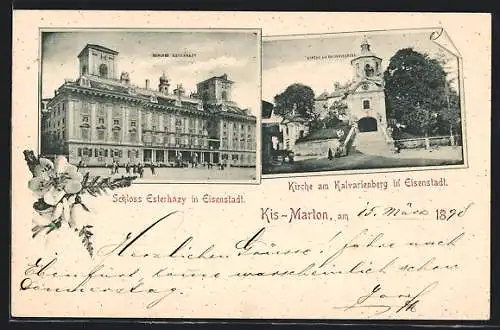 SCHLOSS ESTERHAZY
KIRCHE AM KALVARIENBERG
Schloss Esterhazy in Eisenstadt.
Kirche am Kalvarienberg in Eisenstadt.
Kis-Marton, am 15. März 1898
Herzlichen Grüsse! fahre nach
Ebenfurt komme warscheinlich schon
Donnerstag.